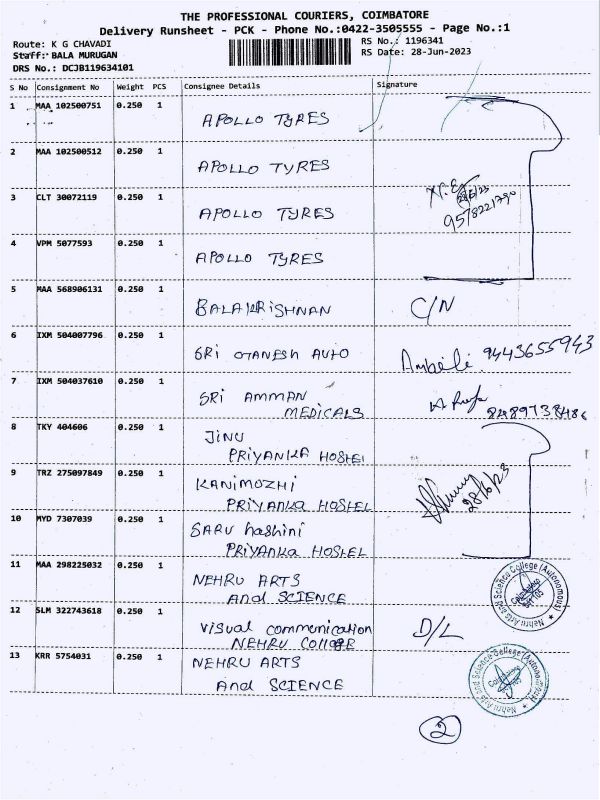 THE PROFESSIONAL COURIERS, COIMBATORE
Delivery Runsheet - PCK - Phone No.:0422-3505555 - Page No.:1
Route: K G CHAVADI
RS No.: 1196341
Staff: BALA MURUGAN
RS Date: 28-Jun-2023
DRS No.: DCJB119634101
S No Consignment No Weight PCS Consignee Details Signature
1 MAA 102500751 0.250 1 APOLLO TYRES
2 MAA 102500512 0.250 1 APOLLO TYRES
3 CLT 30072119 0.250 1 APOLLO TYRES
28/6/23
9578221790
4 VPM 5077593 0.250 1 APOLLO TYRES
5 MAA 568906131 0.250 1 BALAKRISHNAN C/N
6 IXM 504007796 0.250 1 SRI GANESH AUTO Ambili 9443655943
7 IXM 504037610 0.250 1 SRI AMMAN
MEDICALS 8489738486
8 TKY 404606 0.250 1 JINU
PRIYANKA HOSTEL
9 TRZ 275097849 0.250 1 KANIMOZHI
PRIYANKA HOSTEL 28/6/23
10 MYD 7307039 0.250 1 SARU hashini
PRIYANKA HOSTEL
11 MAA 298225032 0.250 1 NEHRU ARTS
And SCIENCE
Nehru Arts and Science College (Autonomous)
Coimbatore
641 105
12 SLM 322743618 0.250 1 Visual communication
NEHRU College D/L
13 KRR 5754031 0.250 1 NEHRU ARTS
And SCIENCE
Nehru Arts and Science College (Autonomous)
2